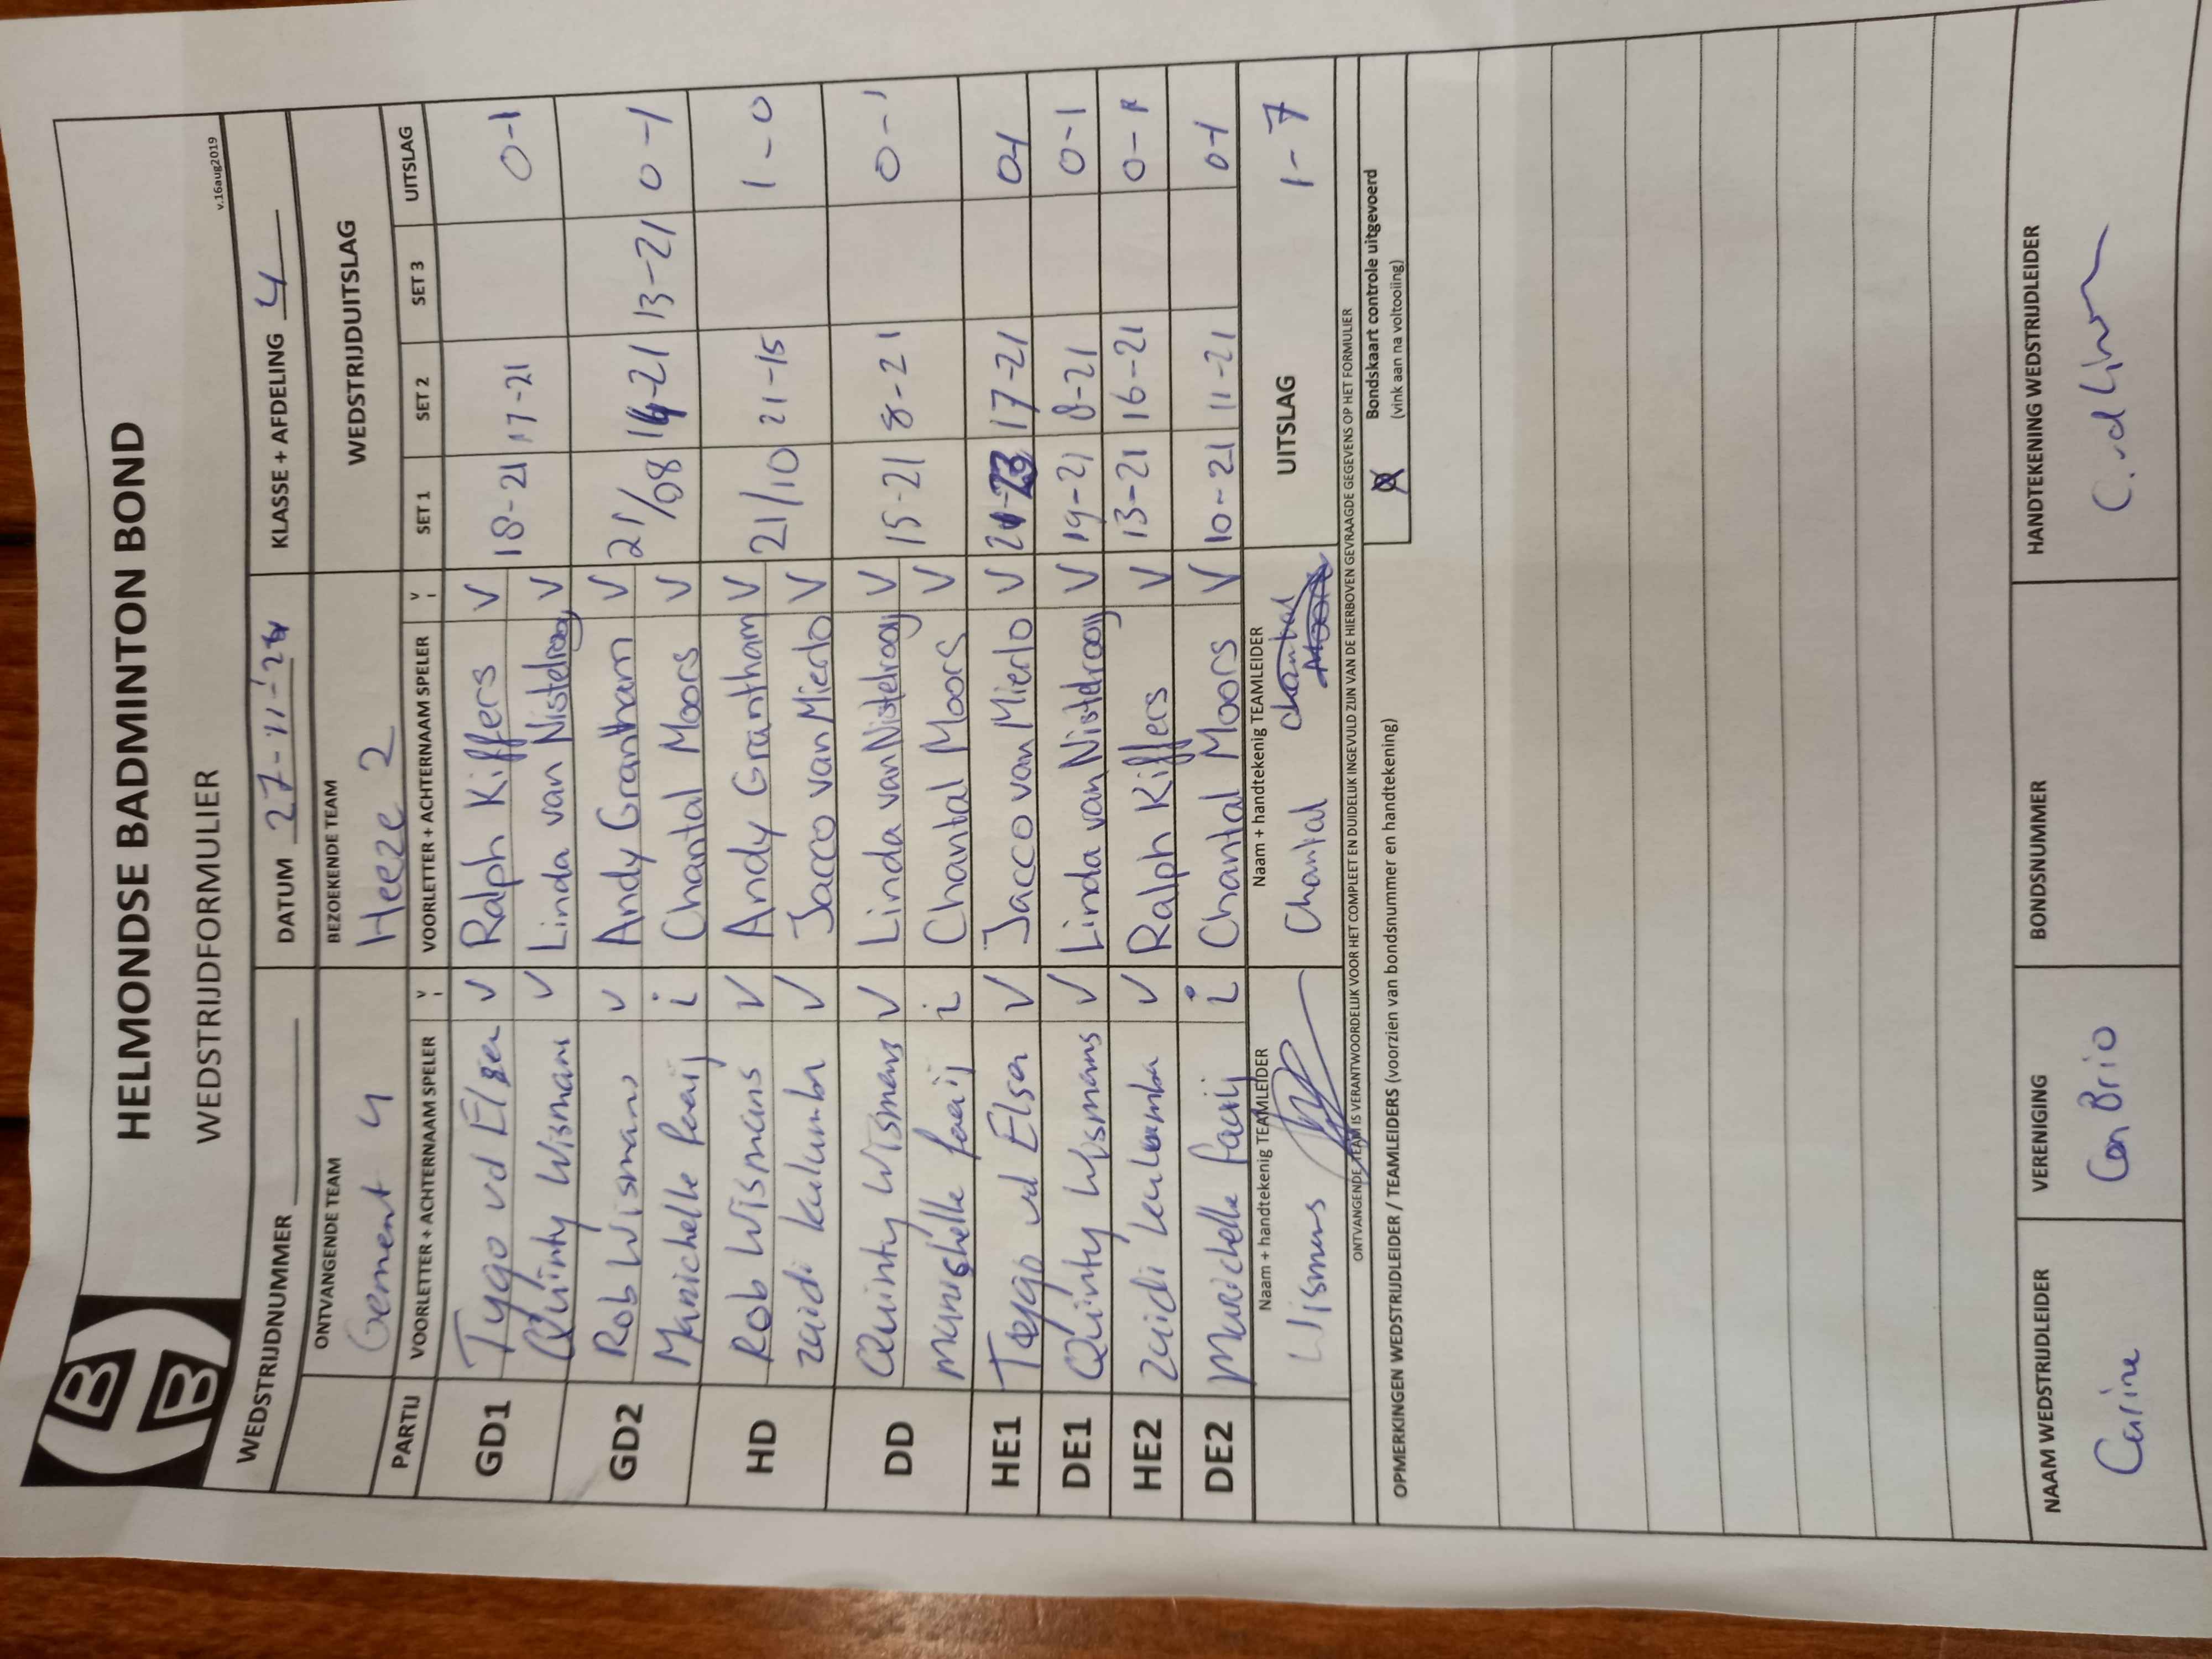 HELMONDSE BADMINTON BOND
WEDSTRIJDFORMULIER
v.16aug2019
WEDSTRIJDNUMMER DATUM 27-11-'24 KLASSE + AFDELING 4
ONTVANGENDE TEAM BEZOEKENDE TEAM WEDSTRIJDUITSLAG
Gement 4 Heeze 2
PARTIJ VOORLETTER + ACHTERNAAM SPELER V i VOORLETTER + ACHTERNAAM SPELER V i SET 1 SET 2 SET 3 UITSLAG
GD1 Tygo vd Elsen V Ralph Kiffers V 18-21 17-21 0-1
Quinty Wismans V Linda van Nistelrooy V
GD2 Rob Wismans V Andy Grantham V 21/08 14-21 13-21 0-1
Manichelle Paaij i Chantal Moors V
HD Rob Wismans V Andy Grantham V 21/10 21-15 1-0
zaidi kulumba V Jacco van Mierlo V
DD Quinty Wismans V Linda van Nistelrooy V 15-21 8-21 0-1
manichelle paaij i Chantal Moors V
HE1 Tygo vd Elsen V Jacco van Mierlo V 21-23 17-21 0-1
DE1 Quinty Wismans V Linda van Nistelrooy V 19-21 8-21 0-1
HE2 zaidi kulumba V Ralph Kiffers V 13-21 16-21 0-1
DE2 Manichelle Paaij i Chantal Moors V 10-21 11-21 0-1
Naam + handtekenig TEAMLEIDER Naam + handtekenig TEAMLEIDER UITSLAG 1-7
Wismans Chantal Chantal Moors
ONTVANGENDE TEAM IS VERANTWOORDELIJK VOOR HET COMPLEET EN DUIDELIJK INGEVULD ZIJN VAN DE HIERBOVEN GEVRAAGDE GEGEVENS OP HET FORMULIER
OPMERKINGEN WEDSTRIJDLEIDER / TEAMLEIDERS (voorzien van bondsnummer en handtekening) Bondskaart controle uitgevoerd
(vink aan na voltooiing)
NAAM WEDSTRIJDLEIDER VERENIGING BONDSNUMMER HANDTEKENING WEDSTRIJDLEIDER
Carine Con Brio